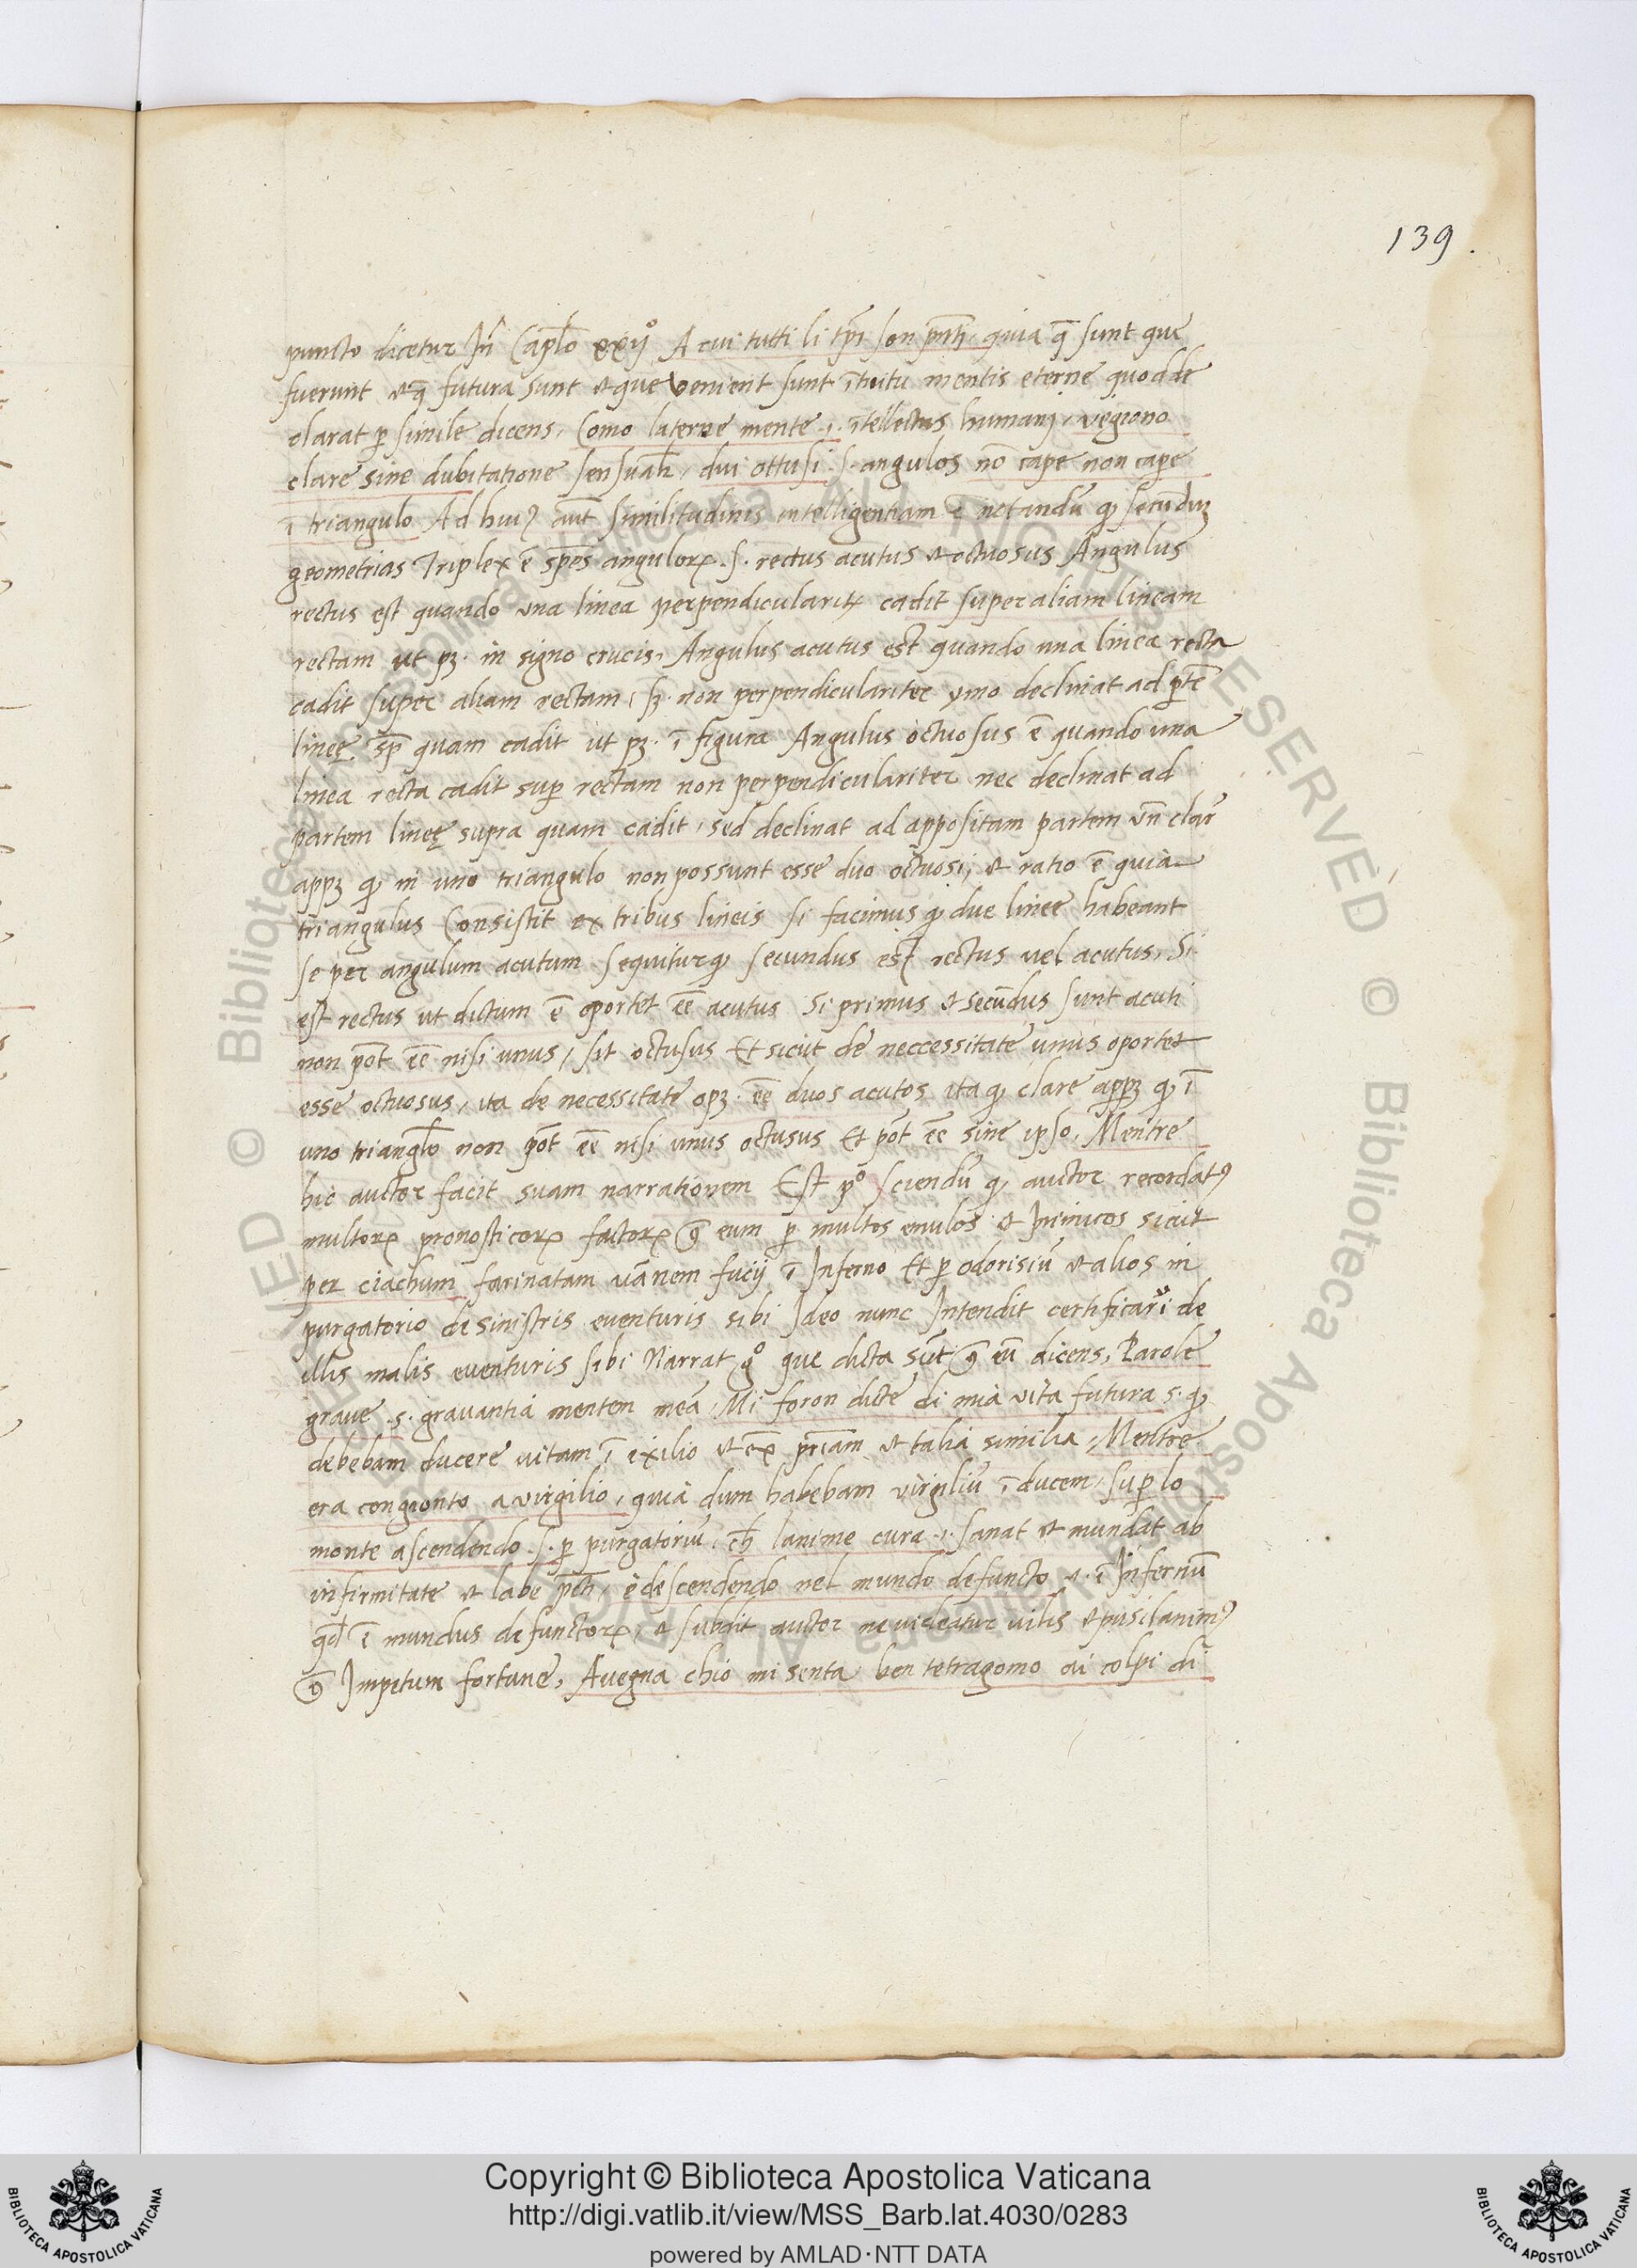 139.
puncto dicetur Iñ Capl̃o xxijº A cui tutti li tp̃i son pñti, quia q̃ sunt que
fuerunt et q̃ futura sunt et que venient sunt ĩtuitu mentis eterne quod de
clarat p̲ simile dicens, Como laterne mente .i. ĩtellectus humanj, vegiono
clare sine dubitatione sensuali, dui ottusi .s. angulos nõ cape non cap̲e
ĩ triangulo Ad huiꝰ aut̃ similitudinis intelligentiam ẽ notandũ qꝫ secũdum
geometrias Triplex ẽ spẽs anguloꝝ .s. rectus acutus et octuosus Angulus
rectus est quando vna linea perpendiculariꝶ cadit super aliam lineam
rectam ut pꝫ. in signo crucis, Angulus acutus est quando una linea recta
cadit super aliam rectam, sꝫ. non perpendiculariter ymo declinat ad p̲tẽ
lineę sp̃ quam cadit ut pꝫ. ĩ figura Angulus octuosus ẽ quando una
linea recta cadit sup̲ rectam non perpendiculariter nec declinat ad
partem lineę supra quam cadit, sed declinat ad appositam partem vñ clar̃
appꝫ qꝫ in uno triangulo non possunt esse duo octuosi, et ratio ẽ quia
triangulus Consistit ex tribus lineis si facimus qꝫ due linee habeant
se per angulum acutum sequitur qꝫ secundus est rectus vel acutus, Si
est rectus ut dictum ẽ oportet eẽ acutus Si primus et secũdus sunt acuti
non põt eẽ nisi unus, sit octusus Et sicut de neccessitate unus oportet
esse octuosus, ita de necessitate opꝫ. eẽ duos acutos ita qꝫ clare appꝫ qꝫ ĩ
uno triangl̃o non põt eẽ nisi unus octusus Et põt eẽ sine ipso, Mentre
hic auctor facit suam narrationem Est pº sciendũ qꝫ auctor recordatꝰ
multoꝝ pronosticoꝝ factoꝝ ꝯ̃ eum p̲ multos emulos et Inimicos sicut
per ciachum farinatam vãnem fucij ĩ Inferno Et p̲ odorisiũ et alios in
purgatorio de sinistris euenturis sibi Ideo nunc Intendit certificari de
illis malis euenturis sibi Narrat gº que dicta sũt ꝯ̃ eũ dicens, Parole
graue .s. grauantia mentem meã, Mi foron dicte di mia vita futura s. qꝫ
debebam ducere vitam ĩ exilio et ex̃ pr̃iam et talia similia, Mentre
era congionto a virgilio, quia dum habebam virgiliũ ĩ ducem, sup̲ lo
monte ascendendo .s. p̲ purgatoriũ, ch̃ lanime cura .i. sanat et mundat ab
infirmitate et labe pcti, e descendendo nel mundo defuncto et. ĩ Infernũ
qd̃ ẽ mundus defunctoꝝ, et subdit auctor ne videatur uilis et pusilanimꝰ
ꝯ̃ Impetum fortune, Auegna chio mi senta ben tetragomo ai colpi di
Copyright © Biblioteca Apostolica Vaticana
http://digi.vatlib.it/view/MSS_Barb.lat.4030/0283
powered by AMLAD·NTT DATA
BIBLIOTECA APOSTOLICA VATICANA
BIBLIOTECA APOSTOLICA VATICANA